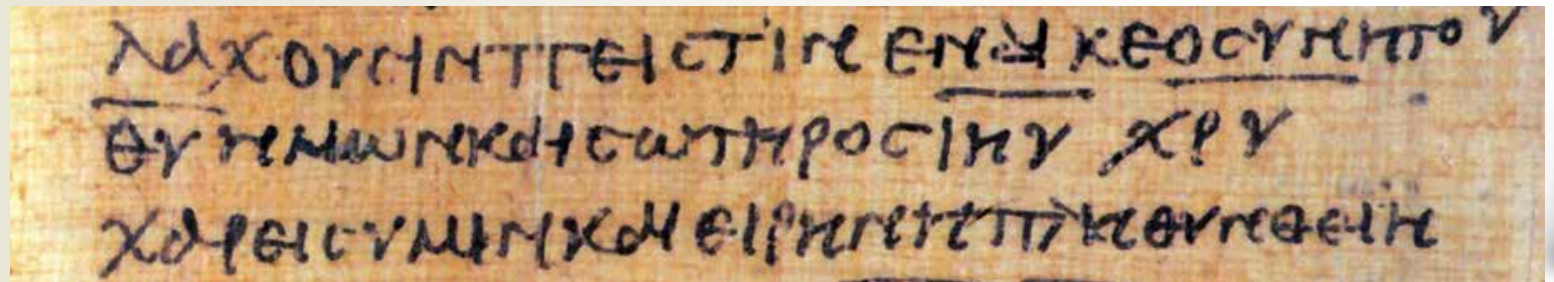 λαχουσιν πειστιν εν δικεοσυνη του
θυ ημων και σωτηρος ιηυ χρυ
χαρεις υμιν και ειρηνη πληθυνθειη